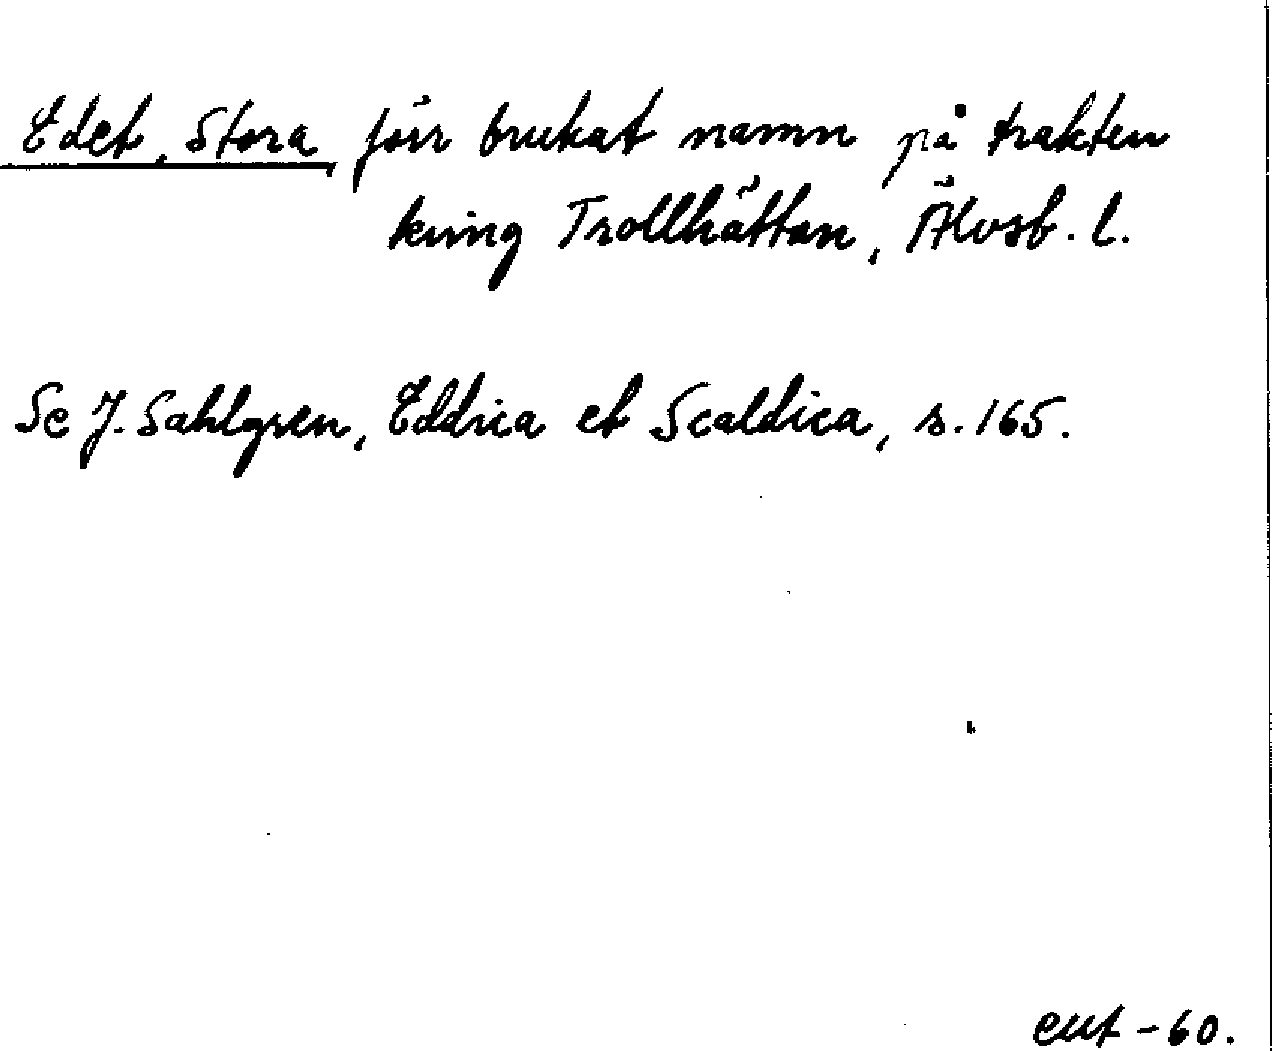 Edet, Stora, förr brukat namn på trakten
kring Trollhättan, Älvsb. l.
Se J. Sahlgren, Eddica et Scaldica, s. 165.
eut -60.